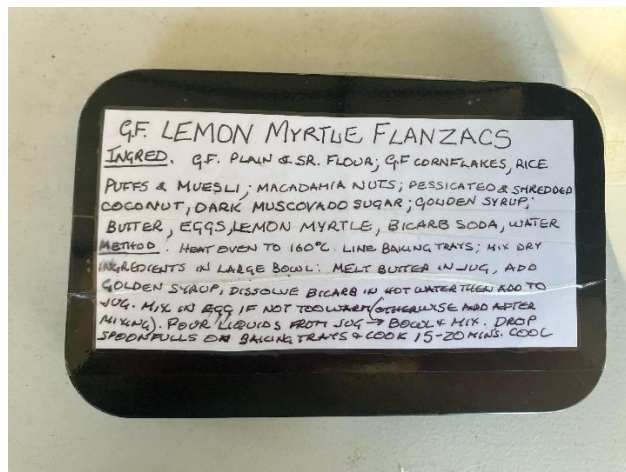 G.F. LEMON MYRTLE FLANZACS
INGRED. G.F. PLAIN & SR. FLOUR; G.F CORNFLAKES, RICE
PUFFS & MUESLI; MACADAMIA NUTS; DESSICATED & SHREDDED
COCONUT, DARK MUSCOVADO SUGAR; GOLDEN SYRUP;
BUTTER, EGGS, LEMON MYRTLE, BICARB SODA, WATER
METHOD: HEAT OVEN TO 160°C. LINE BAKING TRAYS; MIX DRY
INGREDIENTS IN LARGE BOWL: MELT BUTTER IN JUG, ADD
GOLDEN SYRUP, DISSOLVE BICARB IN HOT WATER THEN ADD TO
JUG. MIX IN EGG IF NOT TOO WARM (OTHERWISE ADD AFTER
MIXING). POUR LIQUIDS FROM JUG → BOWL & MIX. DROP
SPOONFULLS ON BAKING TRAYS & COOK 15-20 MINS. COOL